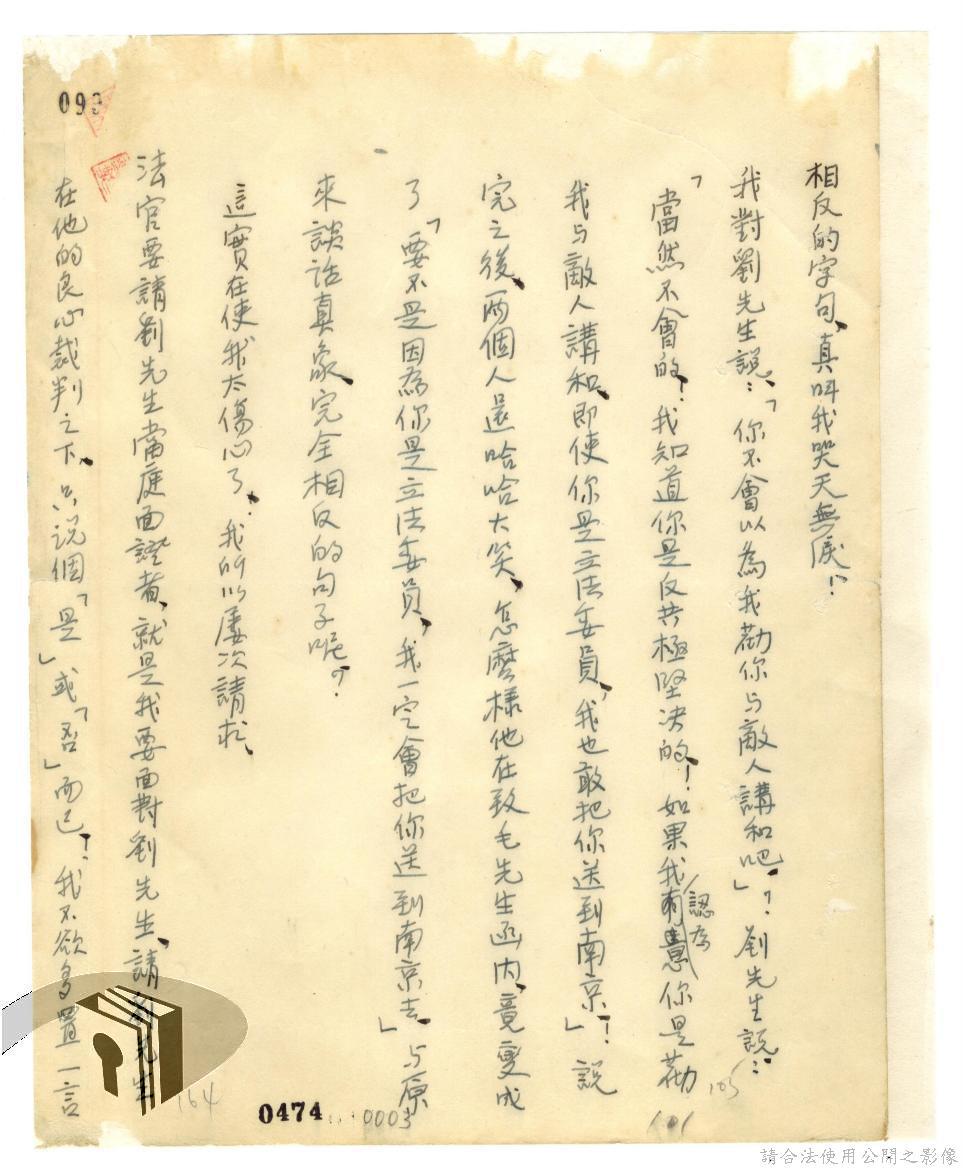 相反的字句、真叫我哭天無淚！
我對劉先生說：「你不會以為我勸你与敵人講和吧」？劉先生說：
「當然不會的！我知道你是反共極堅决的！如果我認为你是勸
我与敵人講和、即使你是立法委員，我也敢把你送到南京！」說
完之後、兩個人還哈哈大笑、怎麼樣他在致毛先生函内、竟變成
了「要不是因為你是立法委員，我一定會把你送到南京去、」与原
來談話真象、完全相反的句子呢？
這實在使我太傷心了、我所以屢次請求、
法官要請劉先生當庭面證者、就是我要面對劉先生、請劉先生
在他的良心裁判之下、只说個「是」或「否」而已！我不欲多置一言
099
164
105
101
0474
0003
請合法使用公開之影像